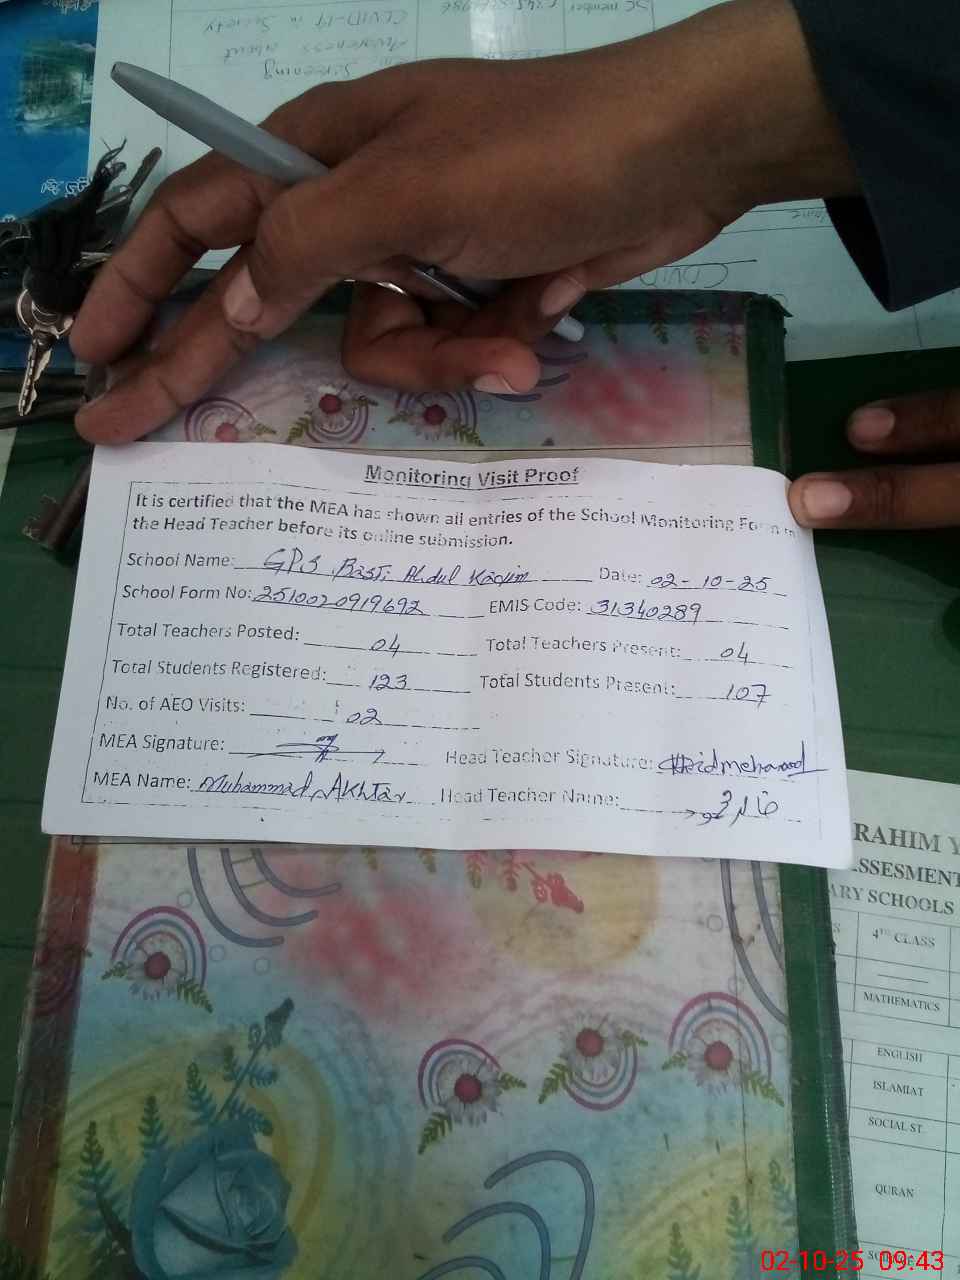 COVID-19 in Society
Awareness about
Screening
Monitoring Visit Proof
It is certified that the MEA has shown all entries of the School Monitoring Form to
the Head Teacher before its online submission.
School Name: GPS Basti Abdul Karim Date: 02-10-25
School Form No: 2510020919692 EMIS Code: 31340289
Total Teachers Posted: 04 Total Teachers Present: 04
Total Students Registered: 123 Total Students Present: 107
No. of AEO Visits: 02
MEA Signature: Head Teacher Signature:
MEA Name: Muhammad Akhtar Head Teacher Name:
RAHIM Y
SSESMENT
ARY SCHOOLS
4TH CLASS
MATHEMATICS
ENGLISH
ISLAMIAT
SOCIAL ST.
QURAN
02-10-25 09:43